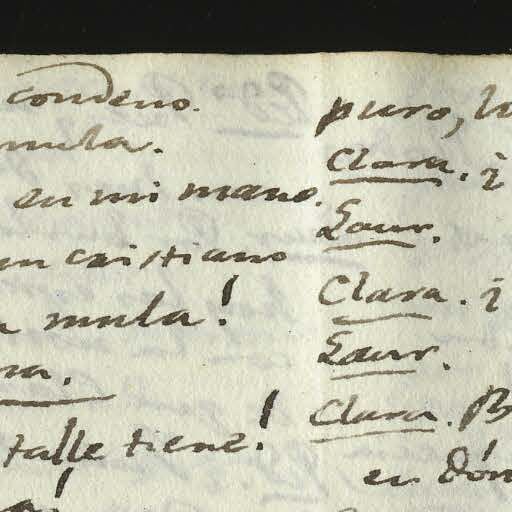 condeno.
mula.
en mi mano.
un cristiano
mula!
na.
talle tiene!
!
puro, lo
Clara. ¿
Laur.
Clara. ¿
Laur.
Clara. B
en dón